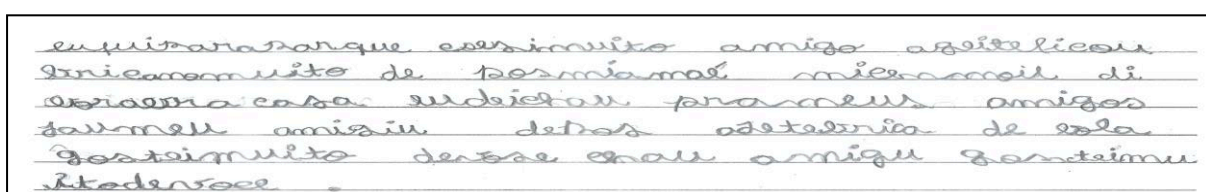 eufuisarasarque esesimuito amigo ageitelicou
brricamomuito de posmiamaé micemmoil di
casa eudeichau prameus amigos
saumeu amigiu depos agetebrica de eola
gosteimuito desse enau amigu gosnteimu
itodevoce .